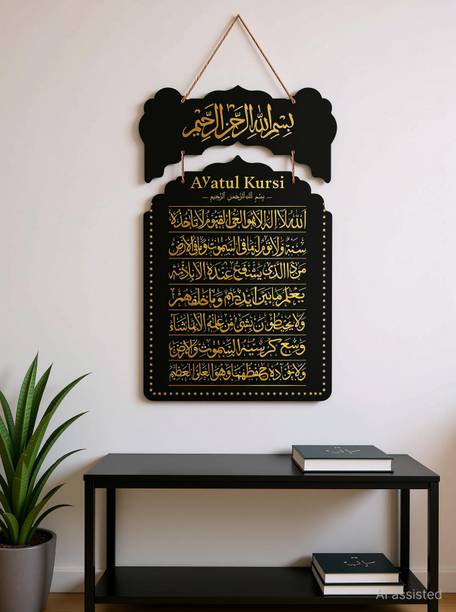 بسم الله الرحمن الرحيم
Ayatul Kursi
بسم الله الرحمن الرحيم
الله لا اله الا هو الحي القيوم لا تاخذه
سنة ولا نوم له ما في السموت وما في الارض
من ذا الذي يشفع عنده الا باذنه
يعلم ما بين ايديهم وما خلفهم
ولا يحيطون بشيء من علمه الا بما شاء
وسع كرسيه السموت والارض
ولا يؤده حفظهما وهو العلي العظيم
AI assisted